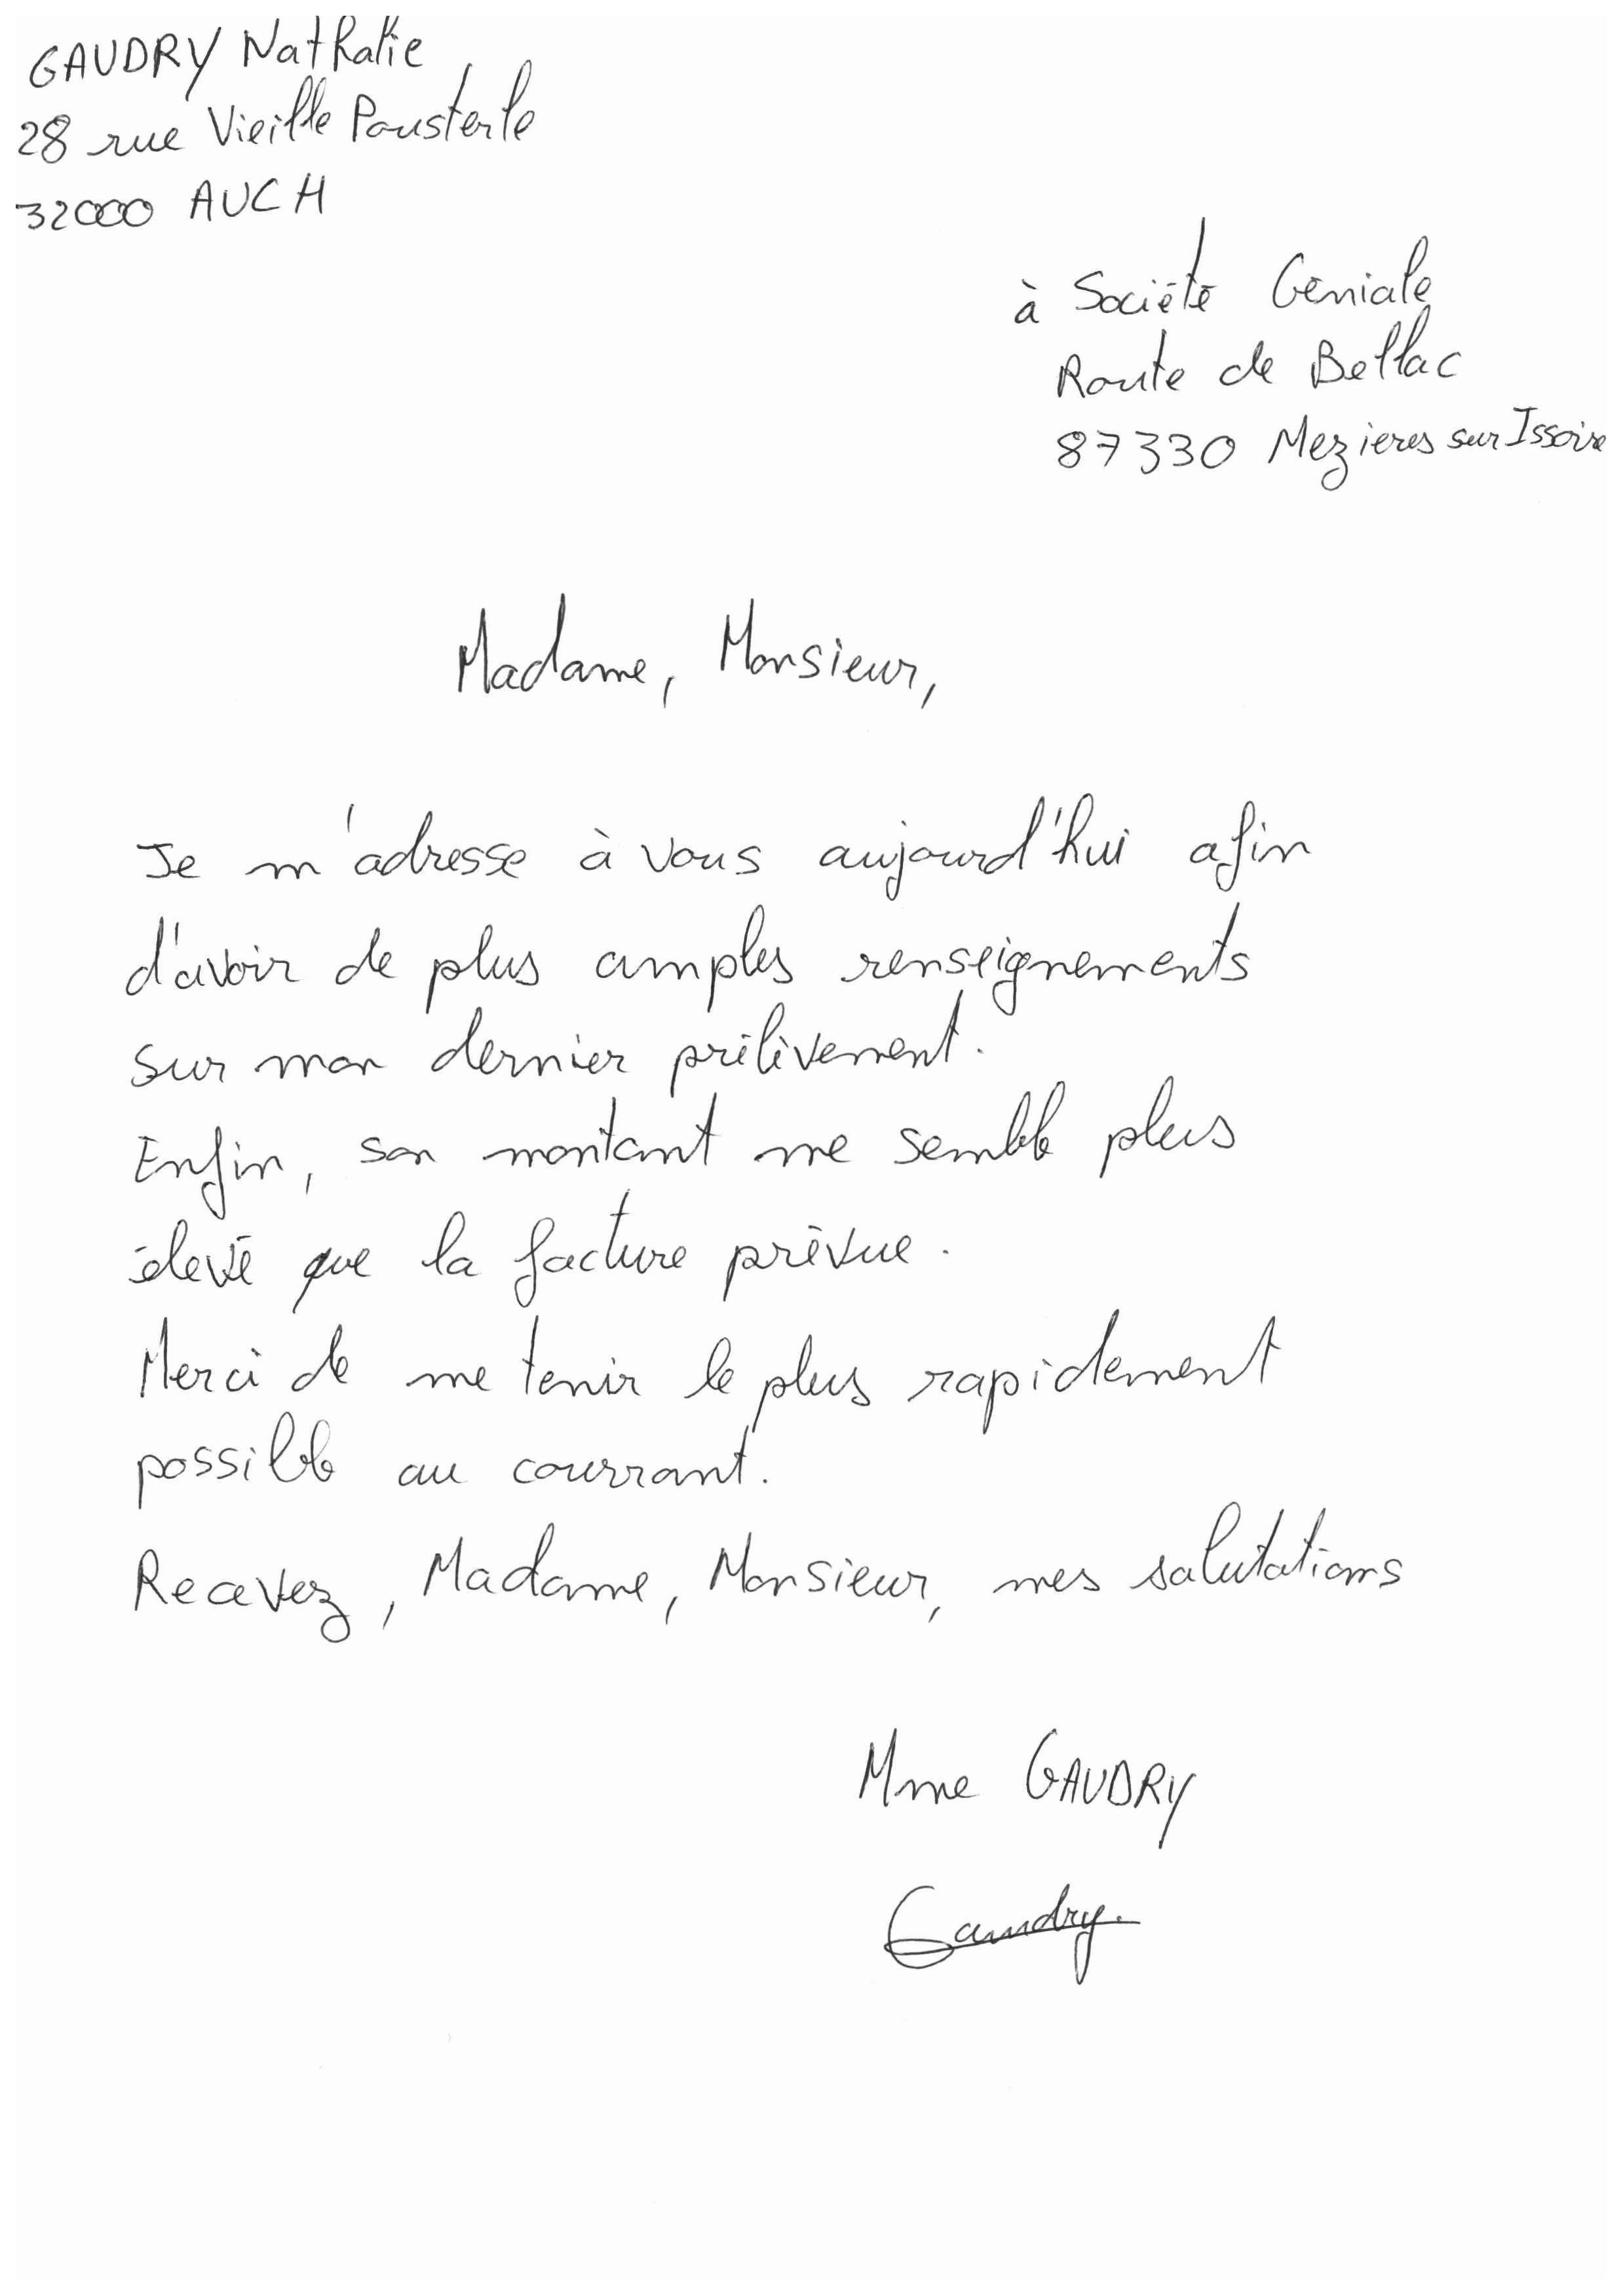 GAUDRY Nathalie
28 rue Vieille Pousterle
32000 AUCH
à Société Géniale
Route de Bellac
87330 Mezieres sur Issoire
Madame, Monsieur,
Je m'adresse à vous aujourd'hui afin
d'avoir de plus amples renseignements
sur mon dernier prélèvement.
Enfin, son montant me semble plus
élevé que la facture prévue.
Merci de me tenir le plus rapidement
possible au courrant.
Recevez, Madame, Monsieur, mes salutations
Mme GAUDRY
Gaudry.